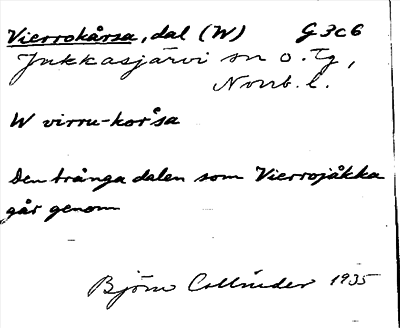 Vierrokårsa, dal (W) G3c6
Jukkasjärvi sn o. Tg,
Norrb. l.
W virru-kor̊sa
Den trånga dalen som Vierrojåkka
går genom
Björn Collinder 1935